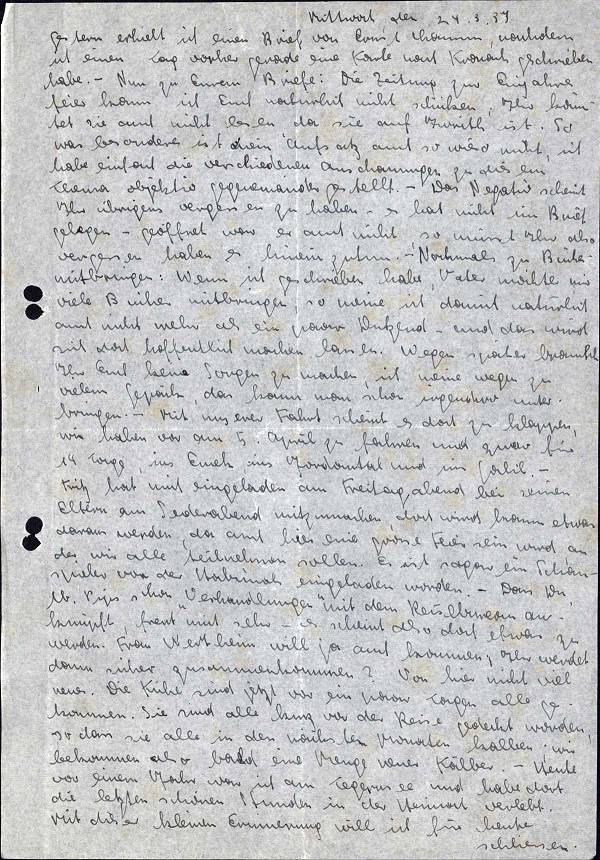 Mittwoch den 24.3.37
Gestern erhielt ich einen Brief von Ernst, nachdem
ich einen Tag vorher gerade eine Karte nach geschrieben
habe. – Nun zu Eurem Briefe: Die Zeitung zur Einjahres
feier kann ich Euch natürlich nicht schicken, Ihr könn-
tet sie auch nicht lesen da sie auf Iwrith ist. So
was besonderes ist mein Aufsatz auch so wieso nicht, ich
habe einfach die verschiedenen Anschauungen zu dies em
Thema objektiv gegeneinander gestellt. – Das Negativ scheint
Ihr übrigens vergessen zu haben – es hat nicht im Brief
gelegen – geöffnet war er auch nicht, so müsst Ihr also
vergessen haben es hinein zutun. – Nochmals zu Bücher
mitbringen: Wenn ich geschrieben habe, Vater möchte mir
viele Bücher mitbringen so meine ich damit natürlich
auch nicht mehr als ein paar Dutzend – und das wird
sich doch hoffentlich machen lassen. Wegen später braucht
Ihr Euch keine Sorgen zu machen, ich meine wegen zu
vielem Gepäck, das kann man schon irgendwie unter
bringen. – Mit unserer Fahrt scheint es doch zu klappen,
wir haben vor am 5 April zu fahren und zwar für
14 Tage ins Emek ins Jordantal und im Galil. –
Fritz hat mich eingeladen am Freitag abend bei seinen
Eltern am Sederabend mitzumachen, doch wird kaum etwas
daraus werden, da auch hier eine grosse Feier sein wird an
der wir alle teilnehmen sollen. Es ist sogar ein Schau-
spieler von der Habimah eingeladen worden. – Dass Du,
lb. schon "Verhandlungen" mit dem Reisebüro an-
knüpft, freut mich sehr – es scheint also doch etwas zu
werden. Frau Wertheim will ja auch kommen, Ihr werdet
dann sicher zusammenkommen? Von hier nicht viel
neues. Die Kühe sind jetzt vor ein paar Tagen alle ge-
kommen. Sie sind alle kurz vor der Reise gedeckt worden,
so dass sie alle in den nächsten Monaten kalben. Wir
bekommen also bald eine Menge neuer Kälber. – Heute
vor einem Jahr war ich am Tegernsee und habe dort
die letzten schönen Stunden in der Heimat verlebt.
Mit dieser kleinen Erinnerung will ich für heute
schliessen.